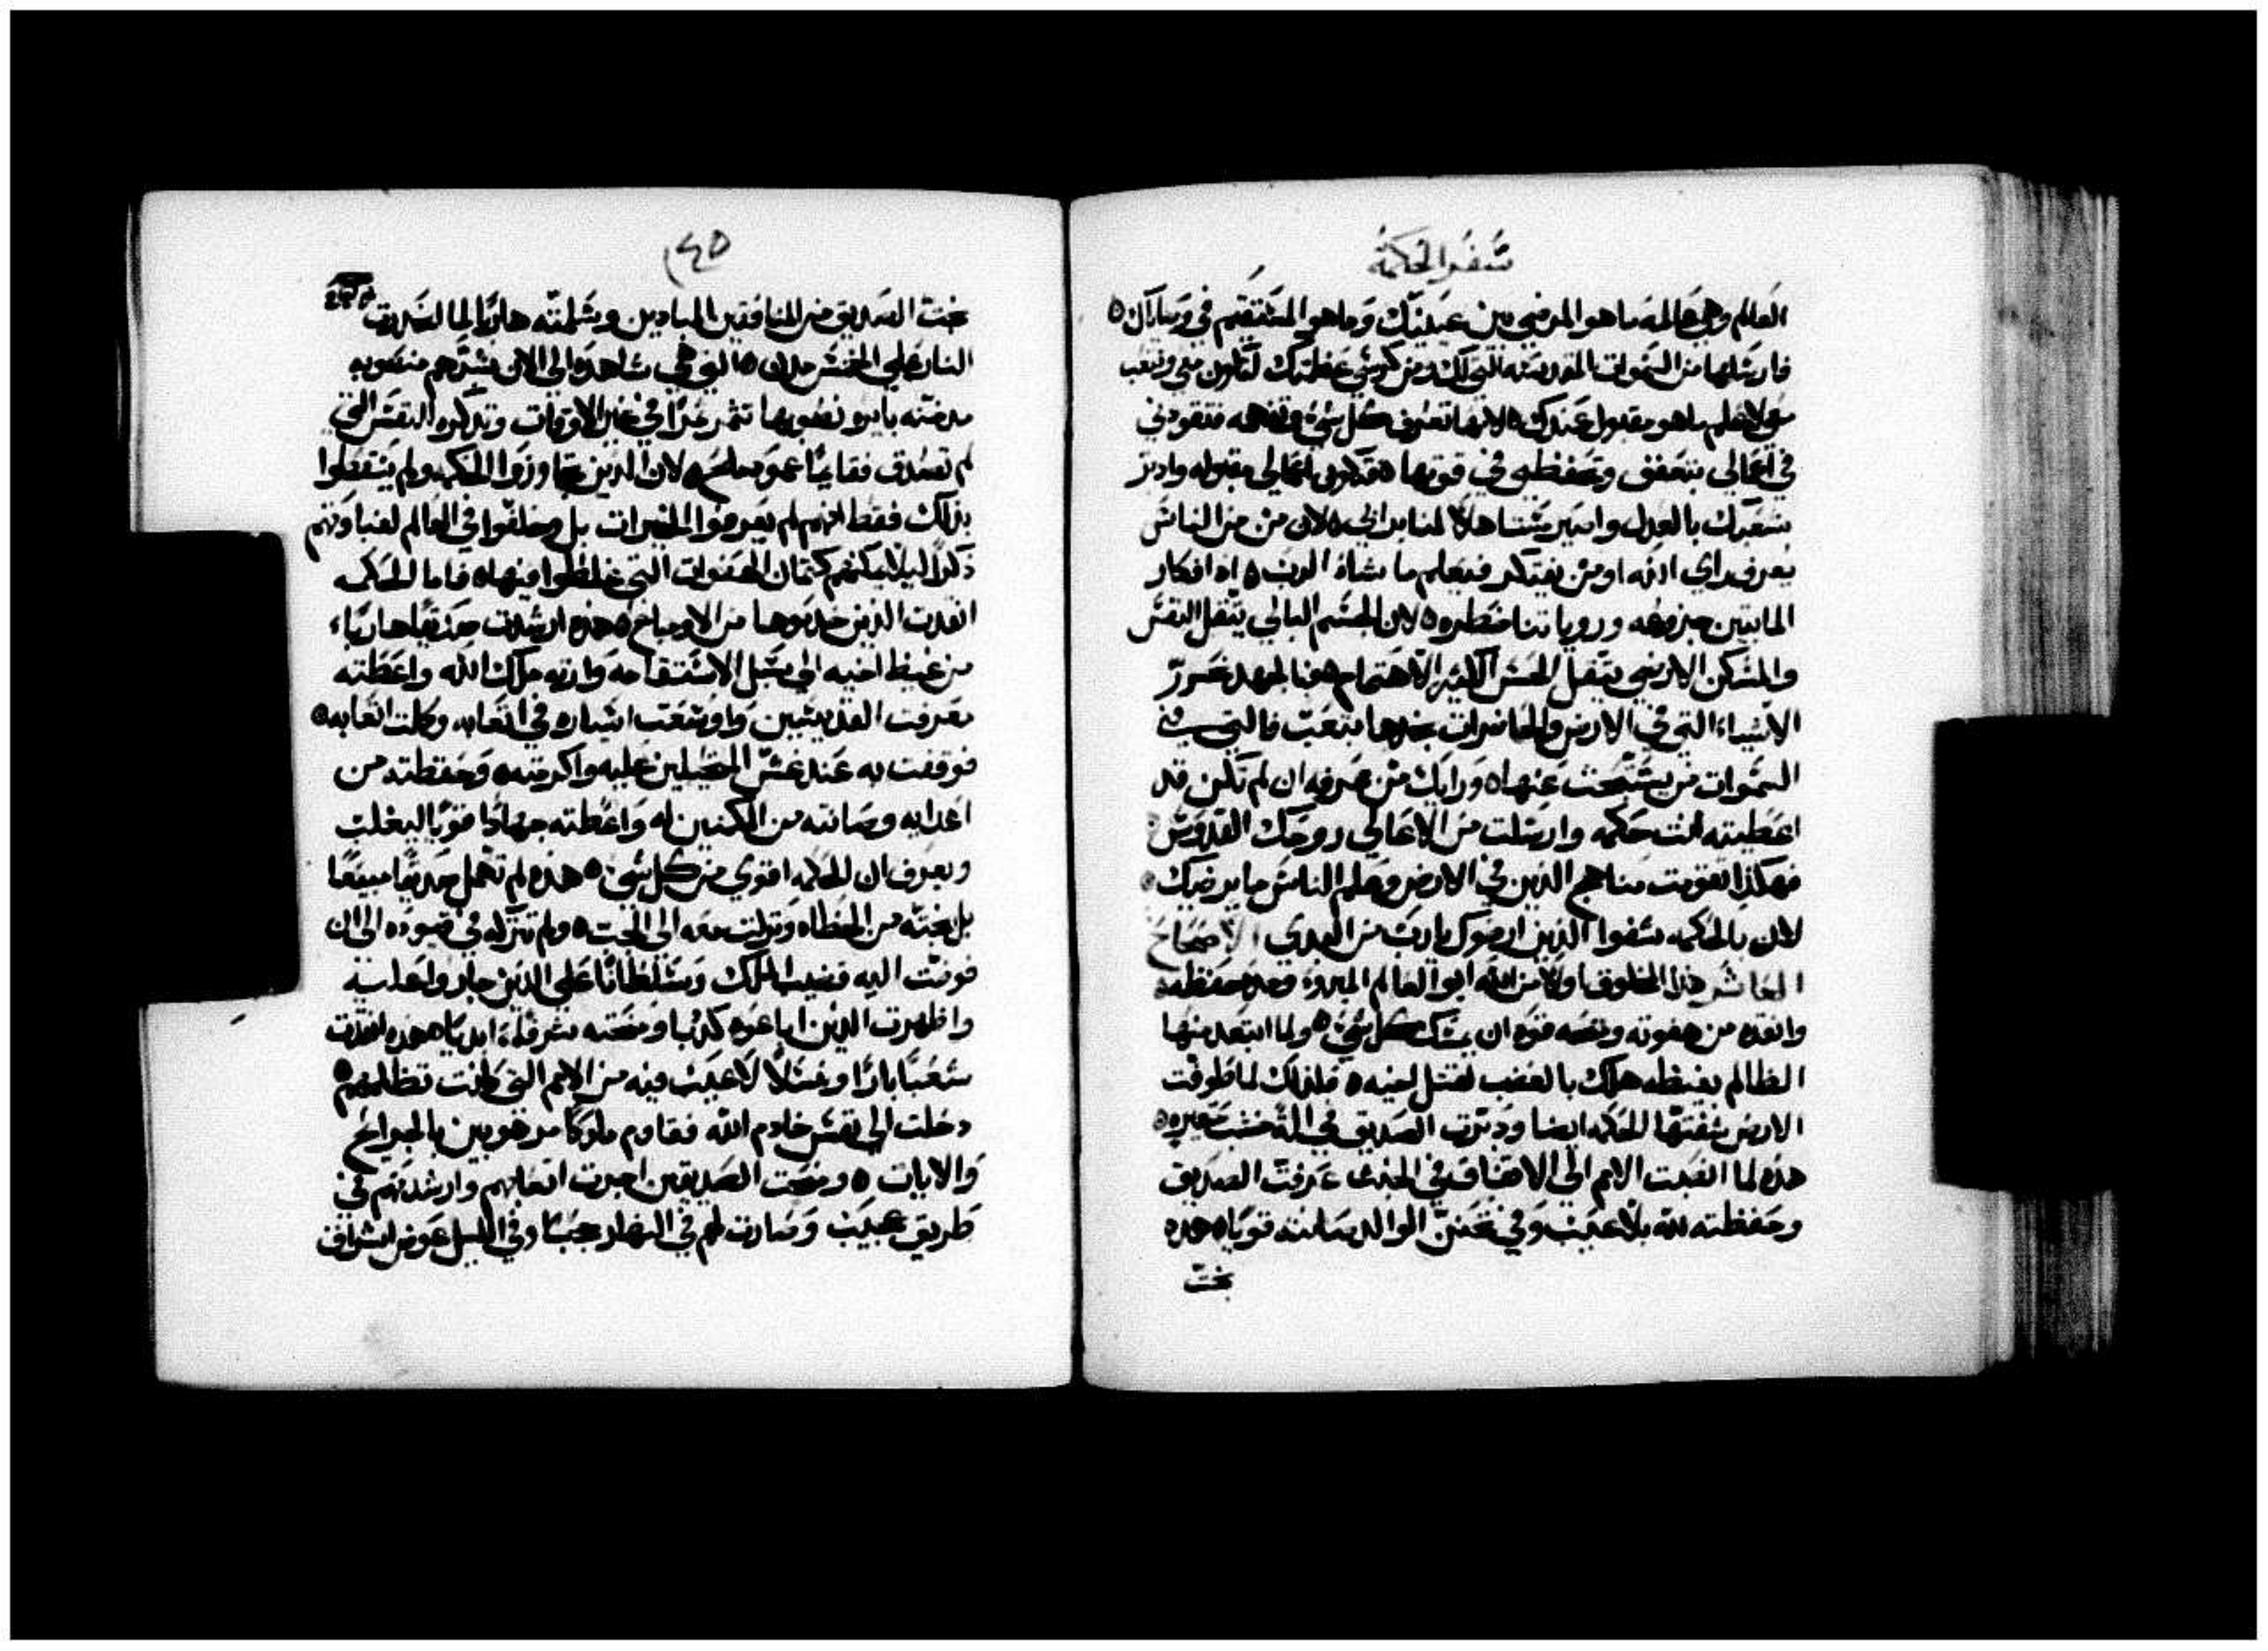 سفر الحكمة
العالم وهي عالمه ما هو المرضي بين عينيك وما هو المستقيم في وصاياك ه
فارسلها من السموات المقدسه التي لك ومن كرسي عظمتك لتكون معي وتتعب
معي لاعلم ما هو مقبول عندك ه لانها تعرف كل شي وتفهمه فتقودني
في اعمالي بتعفف وتحفظني في قوتها ه فتكون اعمالي مقبوله وادبر
شعبك بالعدل واسير مستاهلاً لمنابر ابي ه لان من من الناس
يعرف راي الله او من يفتكر فيعلم ما يشاه الرب ه اه افكار
المايتين جزوعه ورويا تنا خطره ه لان الجسم البالي يثقل النفس
والمسكن الارضي يثقل الحس الكثير الاهتمام ه فبالجهد نحرر
الاشياء التي في الارض والحاضرات نجدها بتعب فالتي في
السموات من يستبحث عنها ه ورايك من عرفه ان لم تكن قد
اعطيته انت حكمه وارسلت من الاعالي روحك القدوس
فهكذا تقومت مناهج الذين في الارض وعلم الناس ما يرضيك ه
لان بالحكمه شفوا الذين ارضوك يارب من البدي الاصحاح
العاشر هذا المخلوق اولاً من الله ابو العالم المبرؤ وحده حفظته
وانقذه من هفوته ومنحه قوه ان يمسك كل شي ه ولما ابتعد منها
الظالم بغيظه هلك بالغضب لقتل اخيه ه فلذلك لما طوفت
الارض شفتها الحكمه ايضا ودبرت الصديق في خشب حقيره ه
هذه لما انصبت الامم الى الاتفاق في الخبث عرفت الصديق
وحفظته لله بلا عيب وفي تحنن الوالد صانته قويا ه هذه
نجت
٤٥
نجت الصديق من المنافقين المبادين وسلمته هارباً لما انحدرت
النار على الخمس مدن ه التي هي شاهده الى الان بشرهم منصوبه
مدخنه بايره نصوبها تثمر ثمراً في غير الاوقات وتذكره النفس التي
لم تصدق فقايماً عمود ملح ه لان الذين تجاوزوا الحكمه ولم يتحفظوا
بذلك فقط انهم لم يعرفوا الخيرات بل وخلفوا في العالم لغباوتهم
ذكراً ليلا يمكنهم كتمان الهفوات التي غلطوا فيها ه فاما الحكمه
انقذت الذين خدموها من الاوجاع ه هذه ارشدت صديقا هاربا،
من غيظ اخيه الى سبل الاستقامه وارته ملك الله واعطته
معرفت القديسين واوسعت اثماره في اتعابه وكملت اتعابه ه
فوقفت به عند غش المحتالين عليه واكرمته ه وحفظته من
اعدايه وصانته من المكمنين له واعطته جهاداً قوياً ليغلب
ويعرف ان الحكمه اقوي من كل شي ه هذه لم تهمل صديقا مبيعاً
بل نجته من الخطاه ونزلت معه الى الجب ه ولم تتركه في قيوده الى ان
قومت اليه قضيب الملك وسلطاناً على الذين جاروا عليه
واظهرت الذين اعابوه كذبا ومنحته شرفاً ابديا ه هذه انقذت
شعباً باراً ونسلاً لا عيب فيه من الامم التي كانت تظلمهم ه
دخلت الى نفس خادم الله فقاوم ملوكا مرهوبين بالجرايح
والايات ه ومنحت الصديقين اجرت اتعابهم وارشدتهم في
طريق عجيب وصارت لهم في النهار حجبا وفي الليل عوض اشراق